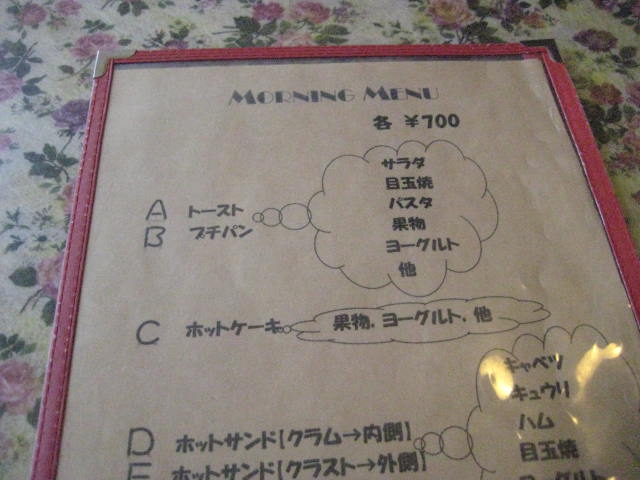 MORNING MENU
各 ¥700
サラダ
目玉焼
パスタ
果物
ヨーグルト
他
A トースト
B プチパン
C ホットケーキ 果物, ヨーグルト, 他
キャベツ
キュウリ
ハム
目玉焼
ヨーグルト
D ホットサンド【クラム→内側】
E ホットサンド【クラスト→外側】